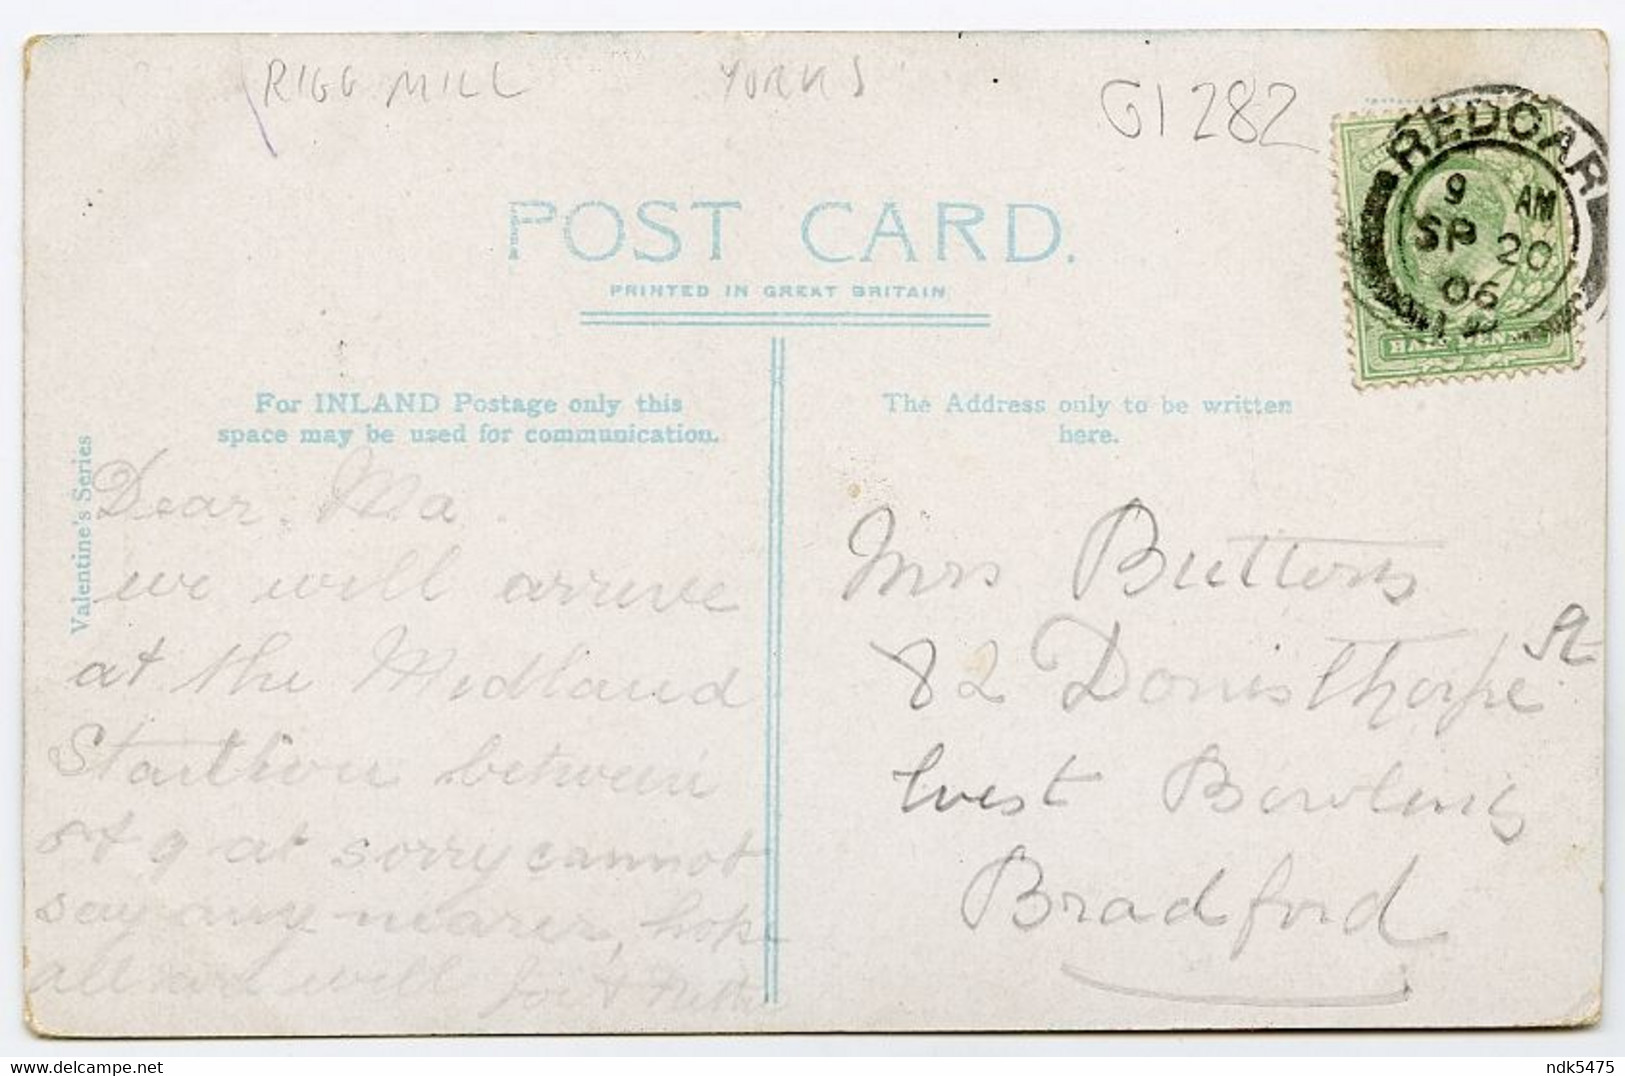 RIGG MILL YORKS G1282
REDCAR
9 AM
SP 20
06
HALF PENNY
POST CARD.
PRINTED IN GREAT BRITAIN
For INLAND Postage only this
space may be used for communication.
The Address only to be written
here.
Valentine's Series
Dear Ma
we will arrive
at the Midland
Station between
8 & 9 at sorry cannot
say any nearer, hope
all are well
Mrs Butters
82 Donisthorpe St
West Bowling
Bradford
ndk5475